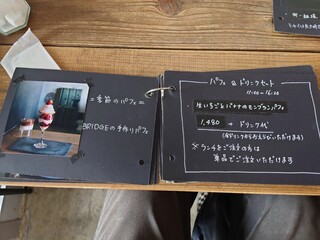 = 季節のパフェ =
BRIDGEの手作りパフェ
パフェ & ドリンクセット
11:00~16:00
生いちごとバナナのモンブランパフェ
1,480 + ドリンク代
※ ランチをご注文の方は
単品でご注文いただけます